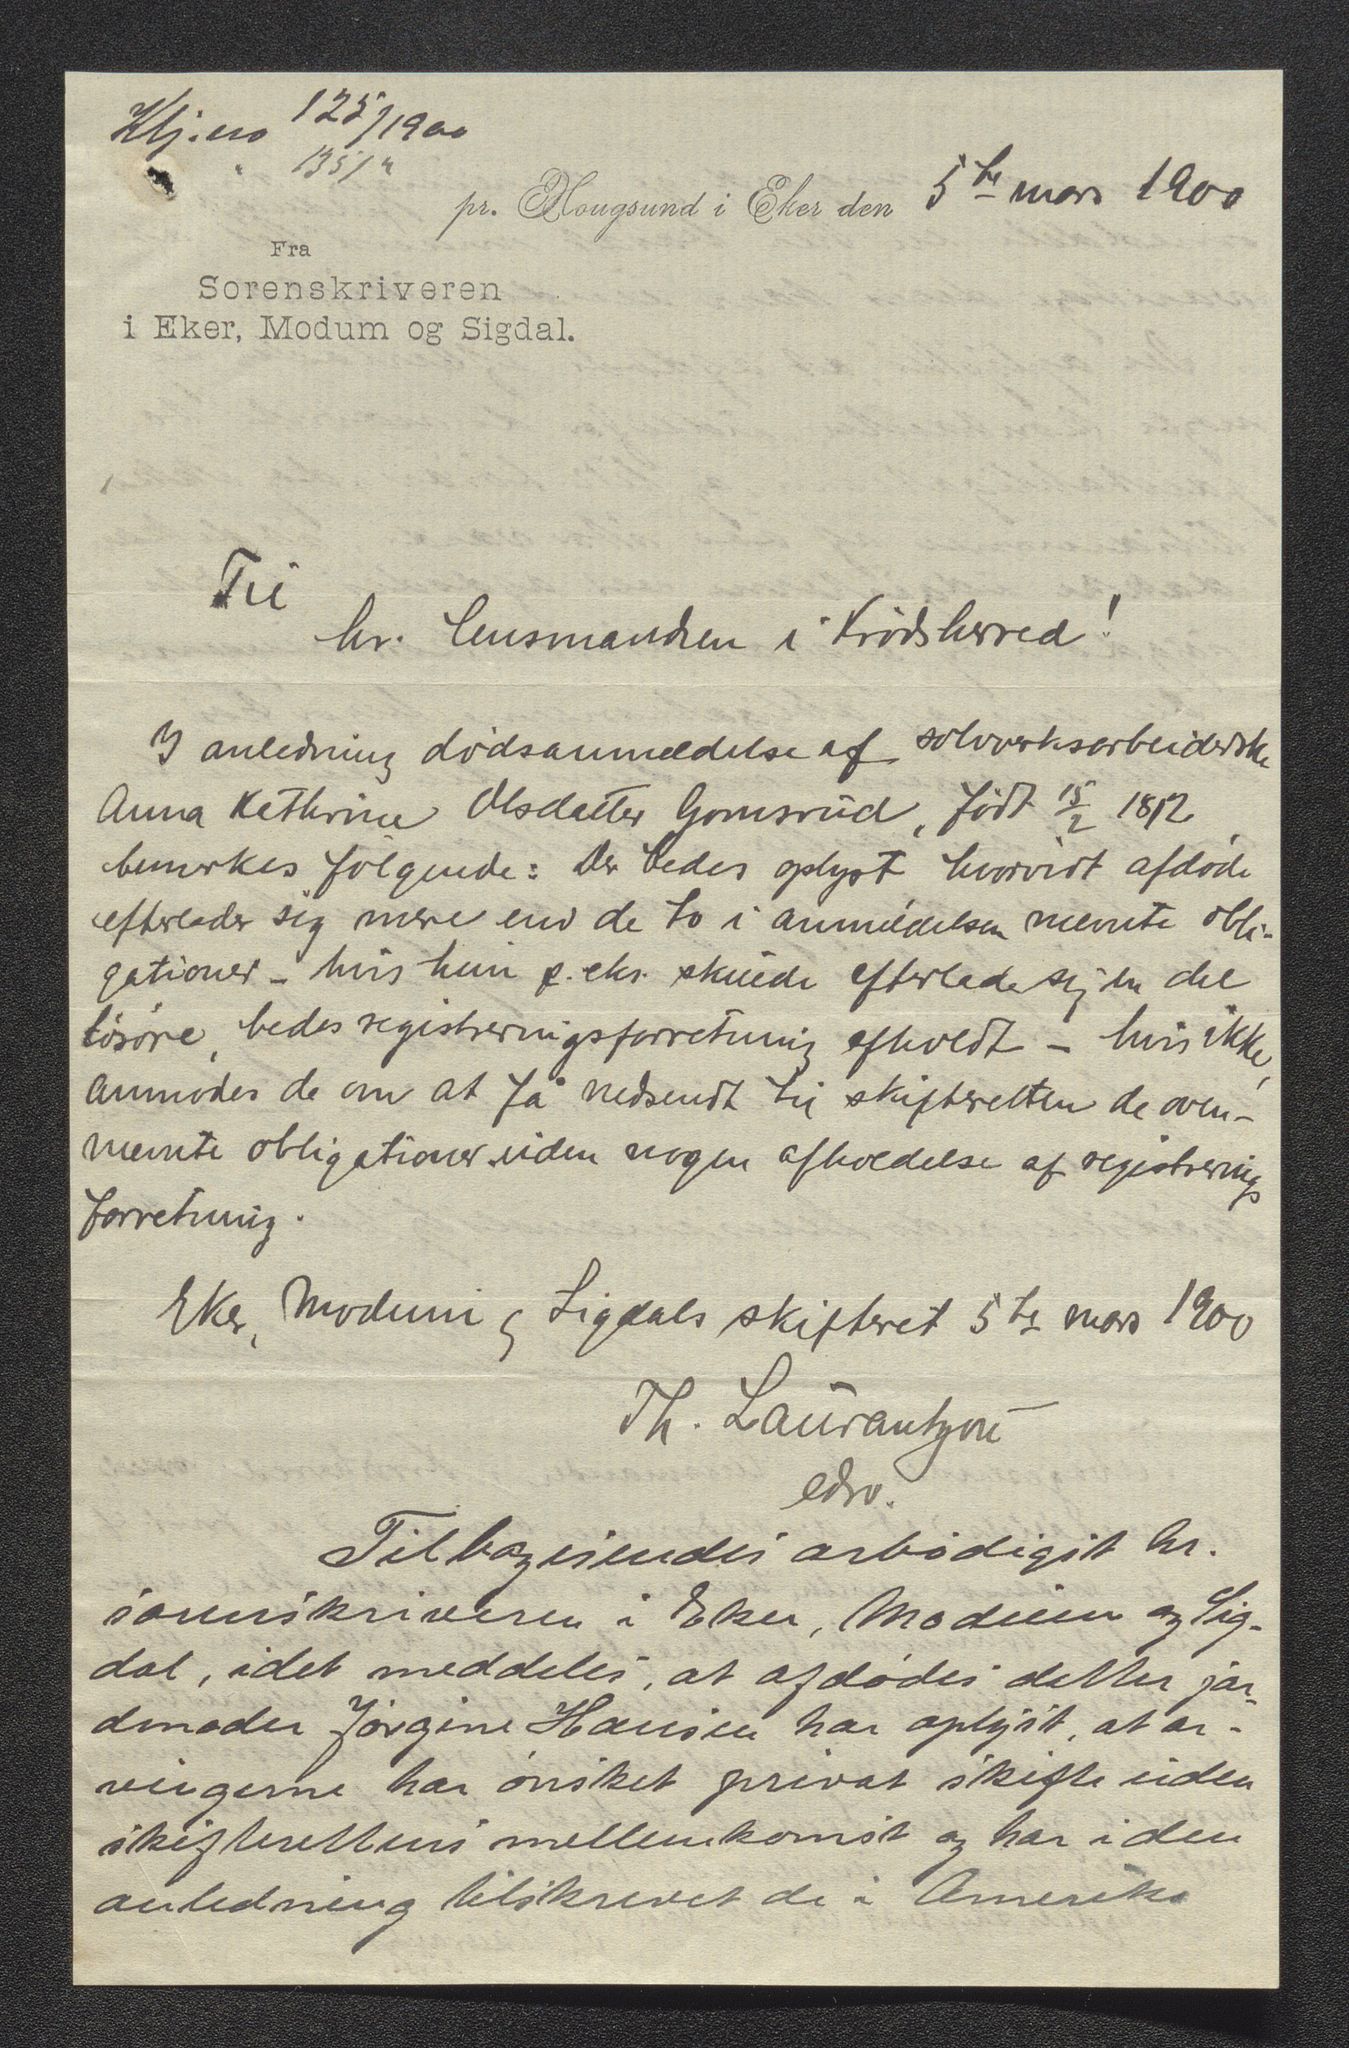 Klj. no 125/1900
" 135/"
pr. Hougsund i Eker den 5te mars 1900
Fra
Sorenskriveren
i Eker, Modum og Sigdal.
Til
hr. lensmanden i Krødsherred!
I anledning dødsanmeldelse af sølvverksarbeiderske
Anna Kathrine Olsdatter Gomsrud, født 15/2 1812
bemerkes følgende: Der bedes oplyst hvorvidt afdøde
efterlader sig mere end de to i anmeldelsen nevnte obli-
gationer – hvis hun f. eks. skulde efterlade sig en del
løsøre, bedes registreringsforretning afholdt – hvis ikke,
anmodes de om at få nedsendt til skifteretten de oven-
nevnte obligationer uden nogen afholdelse af registrerings
forretning.
Eker, Modum og Sigdals skifteret 5te mars 1900
Th. Laurantzon
edsv.
Tilbagesendes ærbødigst hr.
sorenskriveren i Eker, Modum og Sig-
dal, idet meddeles, at afdødes datter jor-
dmoder Jørgine Hansen har oplyst, at ar-
vingerne har ønsket privat skifte uden
skifterettens mellemkomst og har i den
anledning tilskrevet de i Amerika